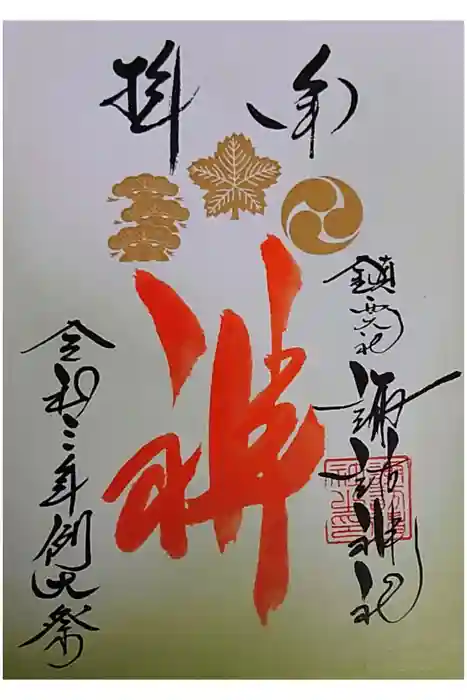 奉拝
鎮西大社 諏訪神社
神
令和三年例大祭